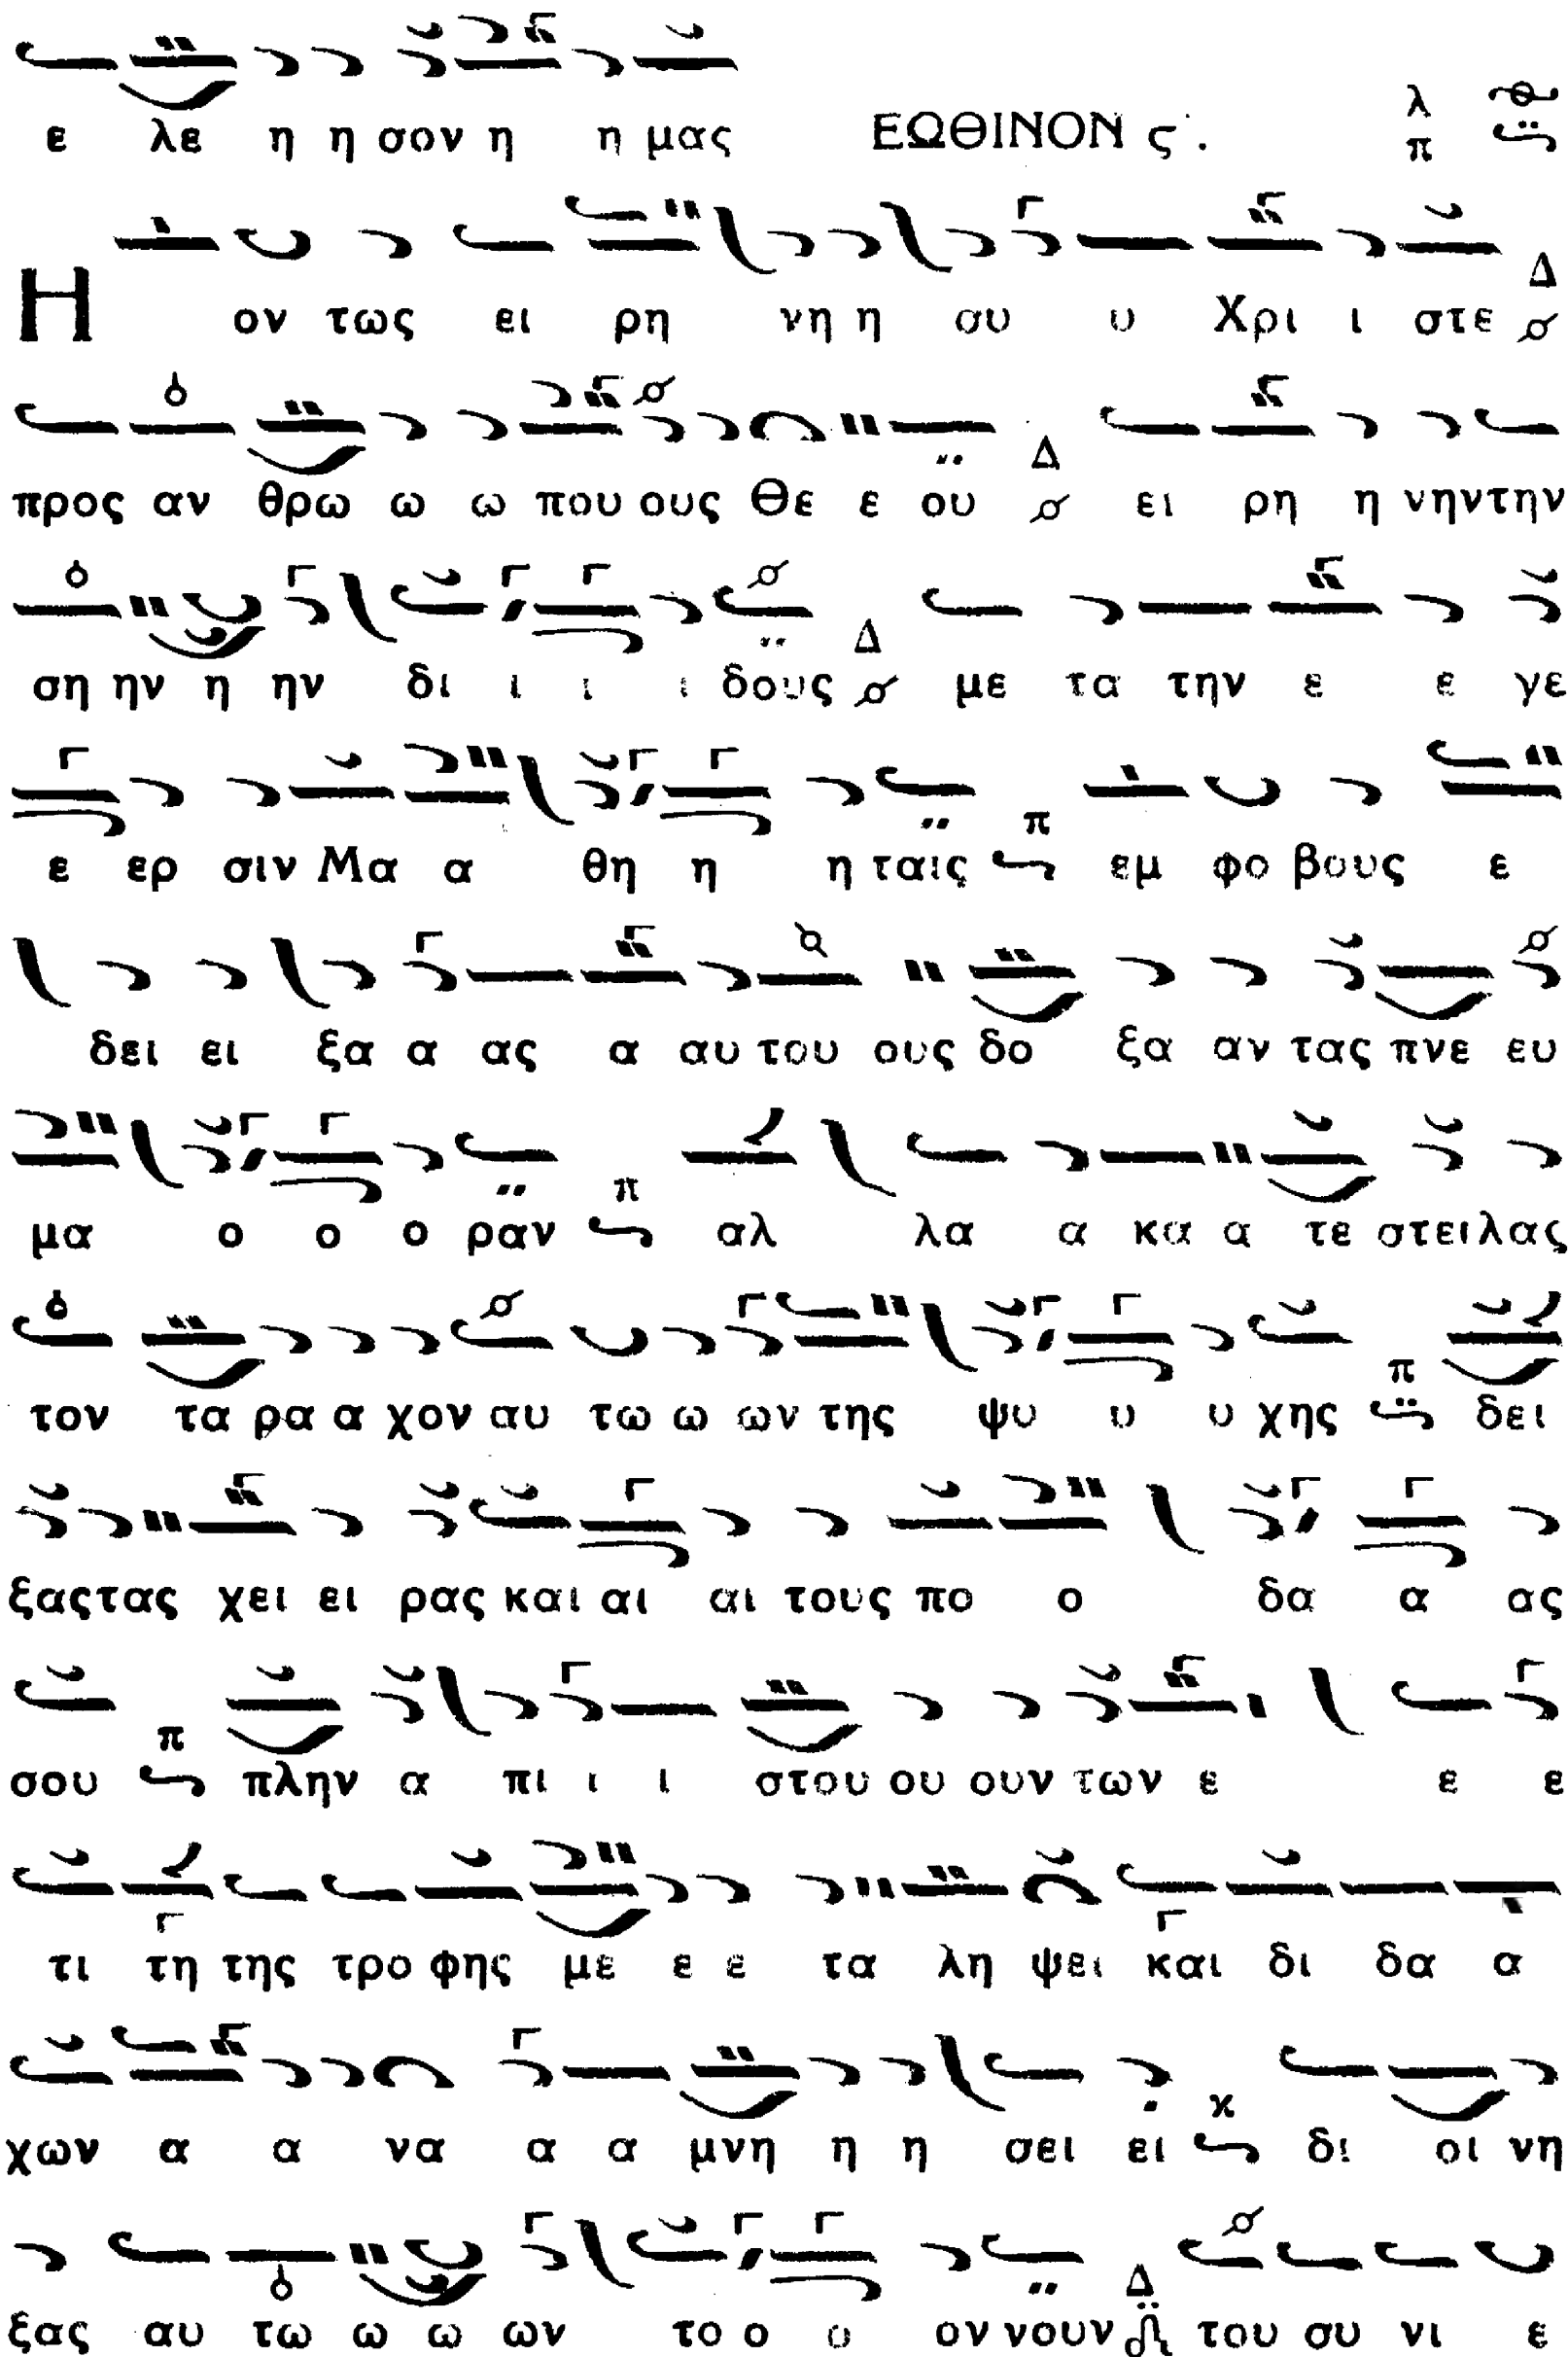 ε λε η η σον η η μας ΕΩΘΙΝΟΝ ς΄. λ π
Η ον τως ει ρη νη η συ υ Χρι ι στε Δ
προς αν θρω ω ω που ους Θε ε ου Δ ει ρη η νην την
ση ην η ην δι ι ι ι δους Δ με τα την ε ε γε
ε ερ σιν Μα α θη η η ταις π εμ φο βους ε
δει ει ξα α ας α αυ του ους δο ξα αν τας πνε ευ
μα ο ο ο ραν π αλ λα α κα α τε στειλας
τον τα ρα α χον αυ τω ω ων της ψυ υ υ χης π δει
ξας τας χει ει ρας και αι αι τους πο ο δα α ας
σου π πλην α πι ι ι στου ου ουν των ε ε ε
τι τη της τρο φης με ε ε τα λη ψει και δι δα α
χων α α να α α μνη η η σει ει κ δι οι νη
ξας αυ τω ω ω ων το ο ο ον νουν Δ του συ νι ε